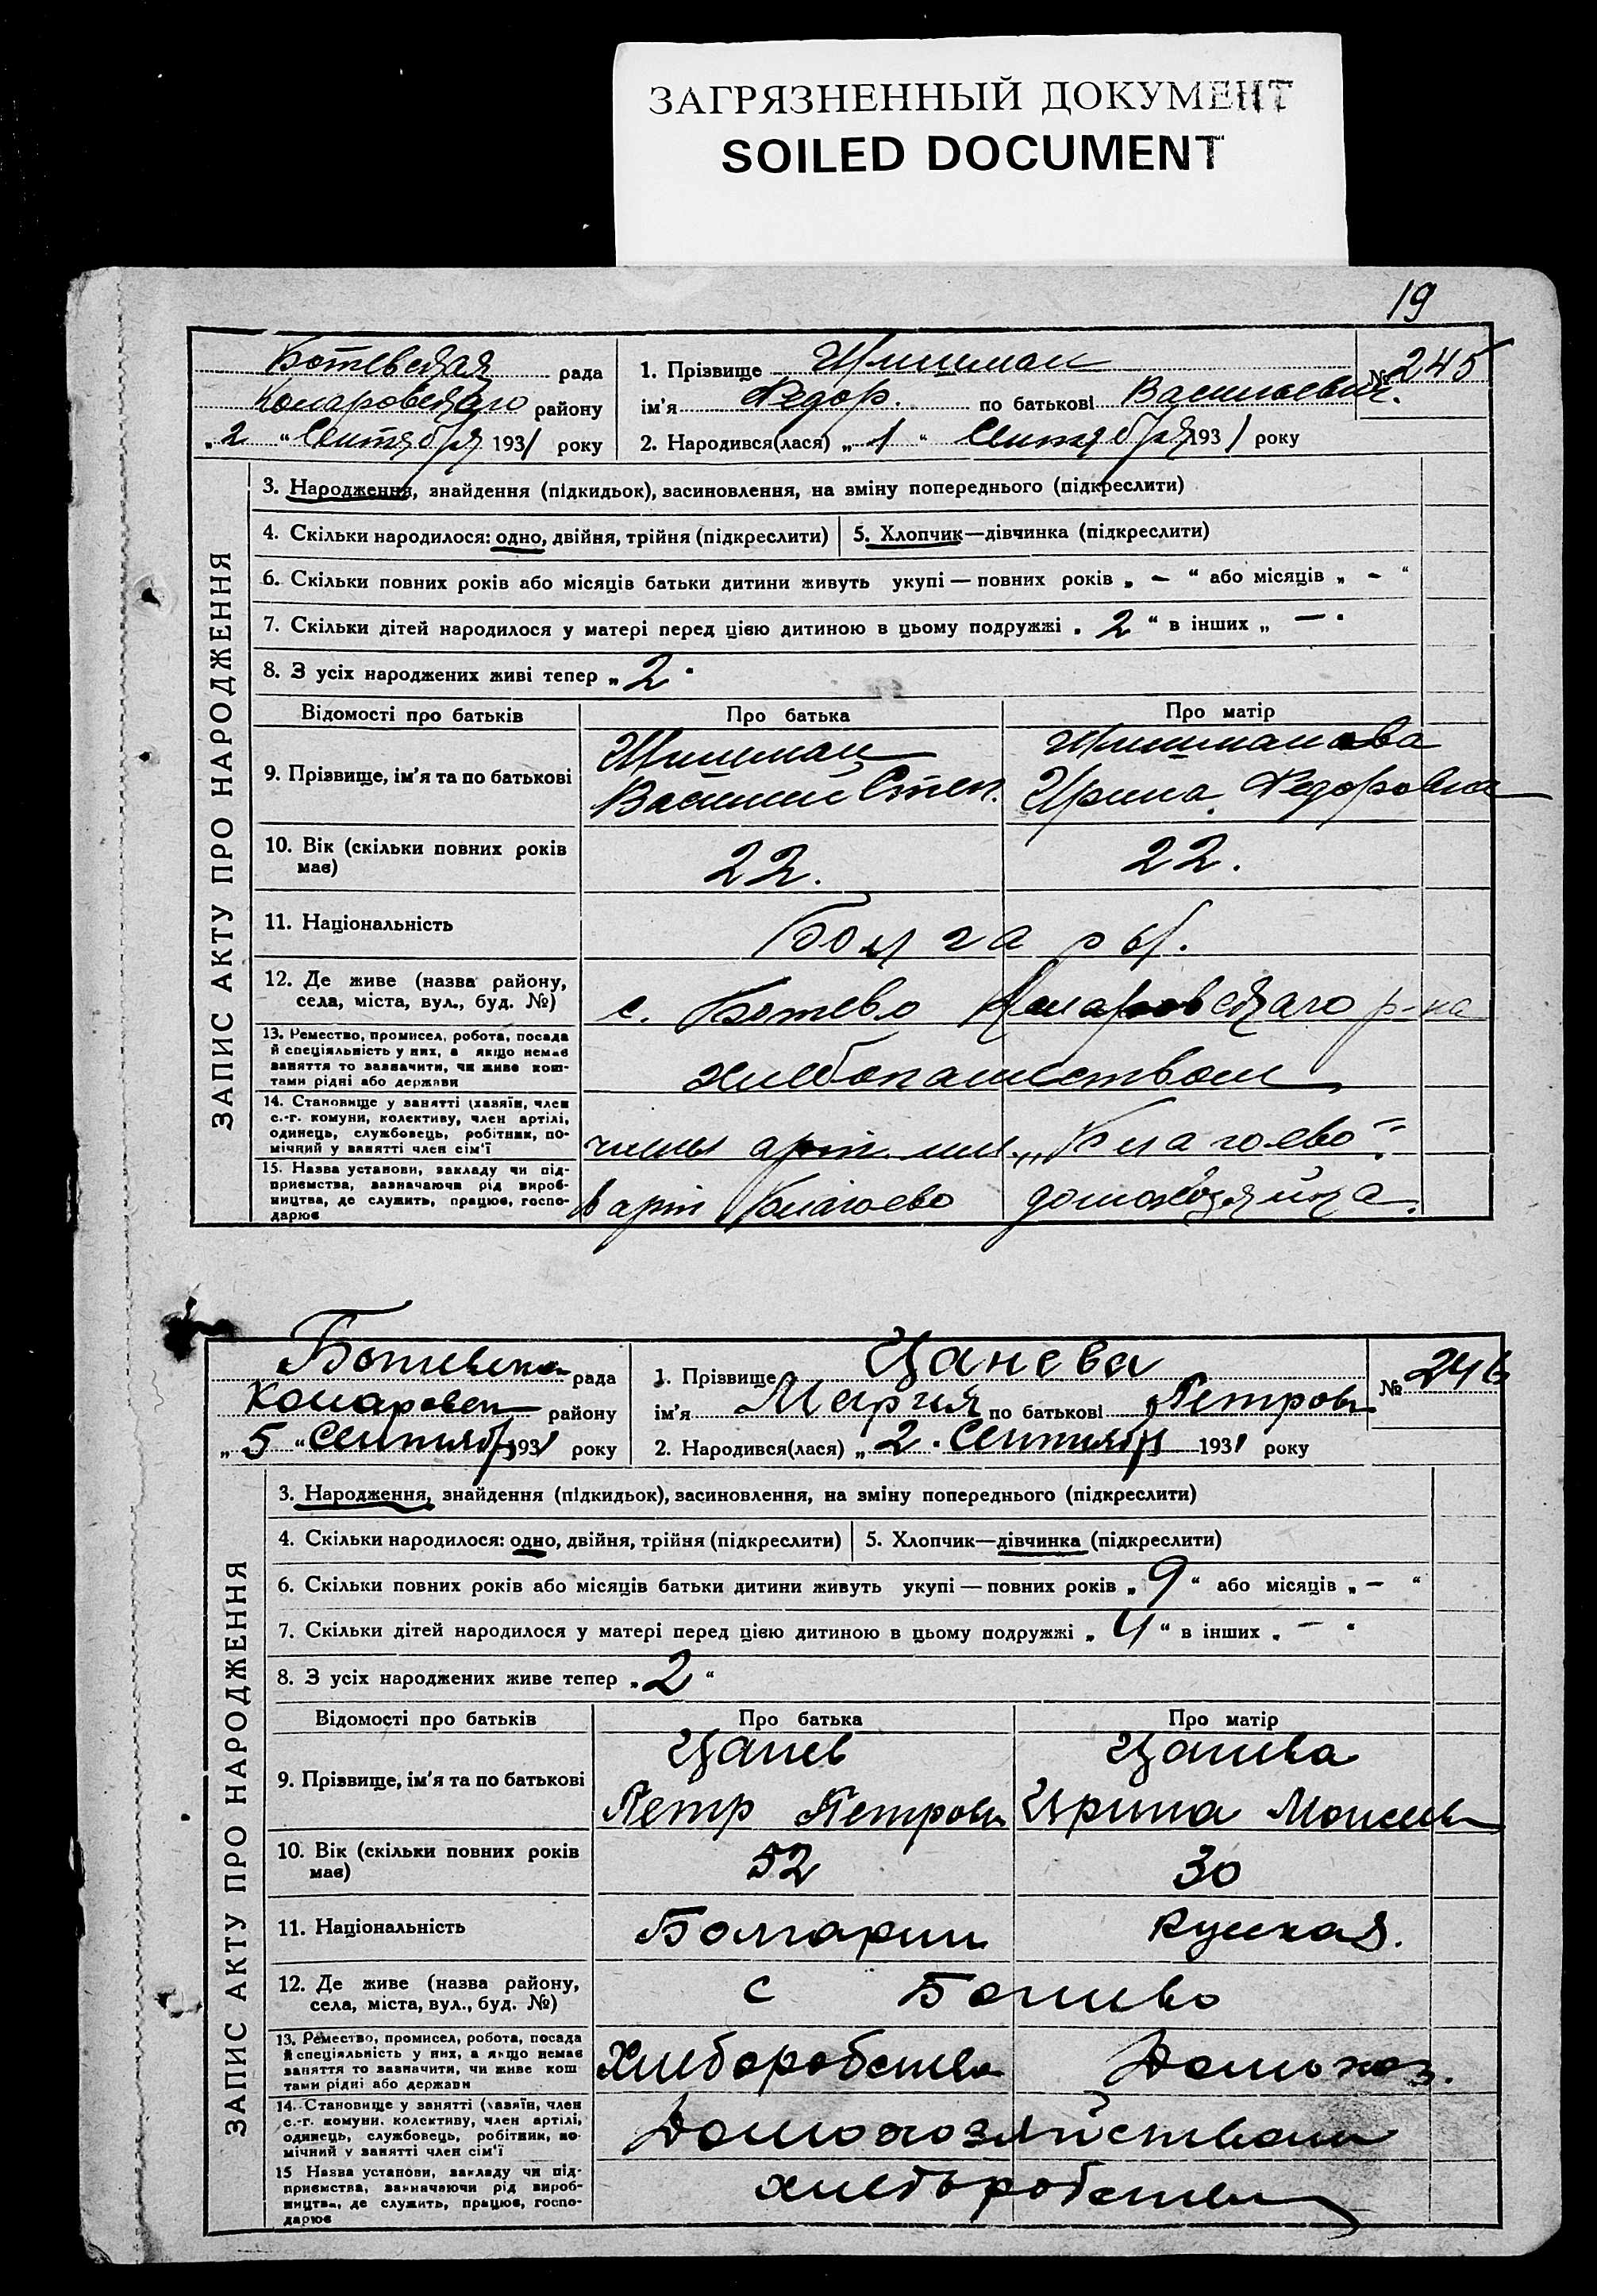 ЗАГРЯЗНЕННЫЙ ДОКУМЕНТ
SOILED DOCUMENT
19
Ботевская рада
Комаровского району
„2“ Сентября 1931 року
1. Прізвище Шишман
№ 245
ім'я Федор. по батькові Васильевич.
2. Народився(лася) „1“ Сентября 1931 року
ЗАПИС АКТУ ПРО НАРОДЖЕННЯ
3. Народження, знайдення (підкидьок), засиновлення, на зміну попереднього (підкреслити)
4. Скільки народилося: одно, двійня, трійня (підкреслити) 5. Хлопчик—дівчинка (підкреслити)
6. Скільки повних років або місяців батьки дитини живуть укупі — повних років „ – “ або місяців „ – “
7. Скільки дітей народилося у матері перед цією дитиною в цьому подружжі „ 2 “ в інших „ — “
8. З усіх народжених живі тепер „ 2 “
Відомості про батьків Про батька Про матір
9. Прізвище, ім'я та по батькові
Шишман
Василий Степ.
Шишманова
Ирина Федоровна
10. Вік (скільки повних років має)
22. 22.
11. Національність
Болгары.
12. Де живе (назва району,
села, міста, вул., буд. №)
с. Ботево р-на
13. Ремество, промисел, робота, посада
й спеціяльність у них, а якщо немає
заняття то зазначити, чи живе кош-
тами рідні або держави
хлебопашеством
14. Становище у занятті (хазяїн, член
с.-г. комуни, колективу, член артілі,
одинець, службовець, робітник, по-
мічний у занятті член сім'ї
члены арт. им. „Благоево“.
15. Назва установи, закладу чи під-
приємства, зазначаючи рід вироб-
ництва, де служить, працює, госпо-
дарює
в арт Благоево домохозяйка.
Ботевска рада
Комаровск району
„5“ Сентября 1931 року
1. Прізвище Цанева
№ 246
ім'я Мария по батькові Петров
2. Народився(лася) „2“ Сентября 1931 року
ЗАПИС АКТУ ПРО НАРОДЖЕННЯ
3. Народження, знайдення (підкидьок), засиновлення, на зміну попереднього (підкреслити)
4. Скільки народилося: одно, двійня, трійня (підкреслити) 5. Хлопчик—дівчинка (підкреслити)
6. Скільки повних років або місяців батьки дитини живуть укупі — повних років „ 9 “ або місяців „ – “
7. Скільки дітей народилося у матері перед цією дитиною в цьому подружжі „ 4 “ в інших „ — “
8. З усіх народжених живе тепер „ 2 “
Відомості про батьків Про батька Про матір
9. Прізвище, ім'я та по батькові
Цанев
Петр Петрович
Цанева
Ирина Моисеев
10. Вік (скільки повних років має)
52 30
11. Національність
Болгарин Руская.
12. Де живе (назва району,
села, міста, вул., буд. №)
с Ботиево
13. Ремество, промисел, робота, посада
й спеціяльність у них, а якщо немає
заняття то зазначити, чи живе кош
тами рідні або держави
Хлеборобство Домохоз.
14. Становище у занятті (хазяїн, член
с.-г. комуни, колективу, член артілі,
одинець, службовець, робітник, по-
мічний у занятті член сім'ї
Домохозяйством
15 Назва установи, закладу чи під-
приємства, зазначаючи рід вироб-
ництва, де служить, працює, госпо-
дарює
хлеборобством